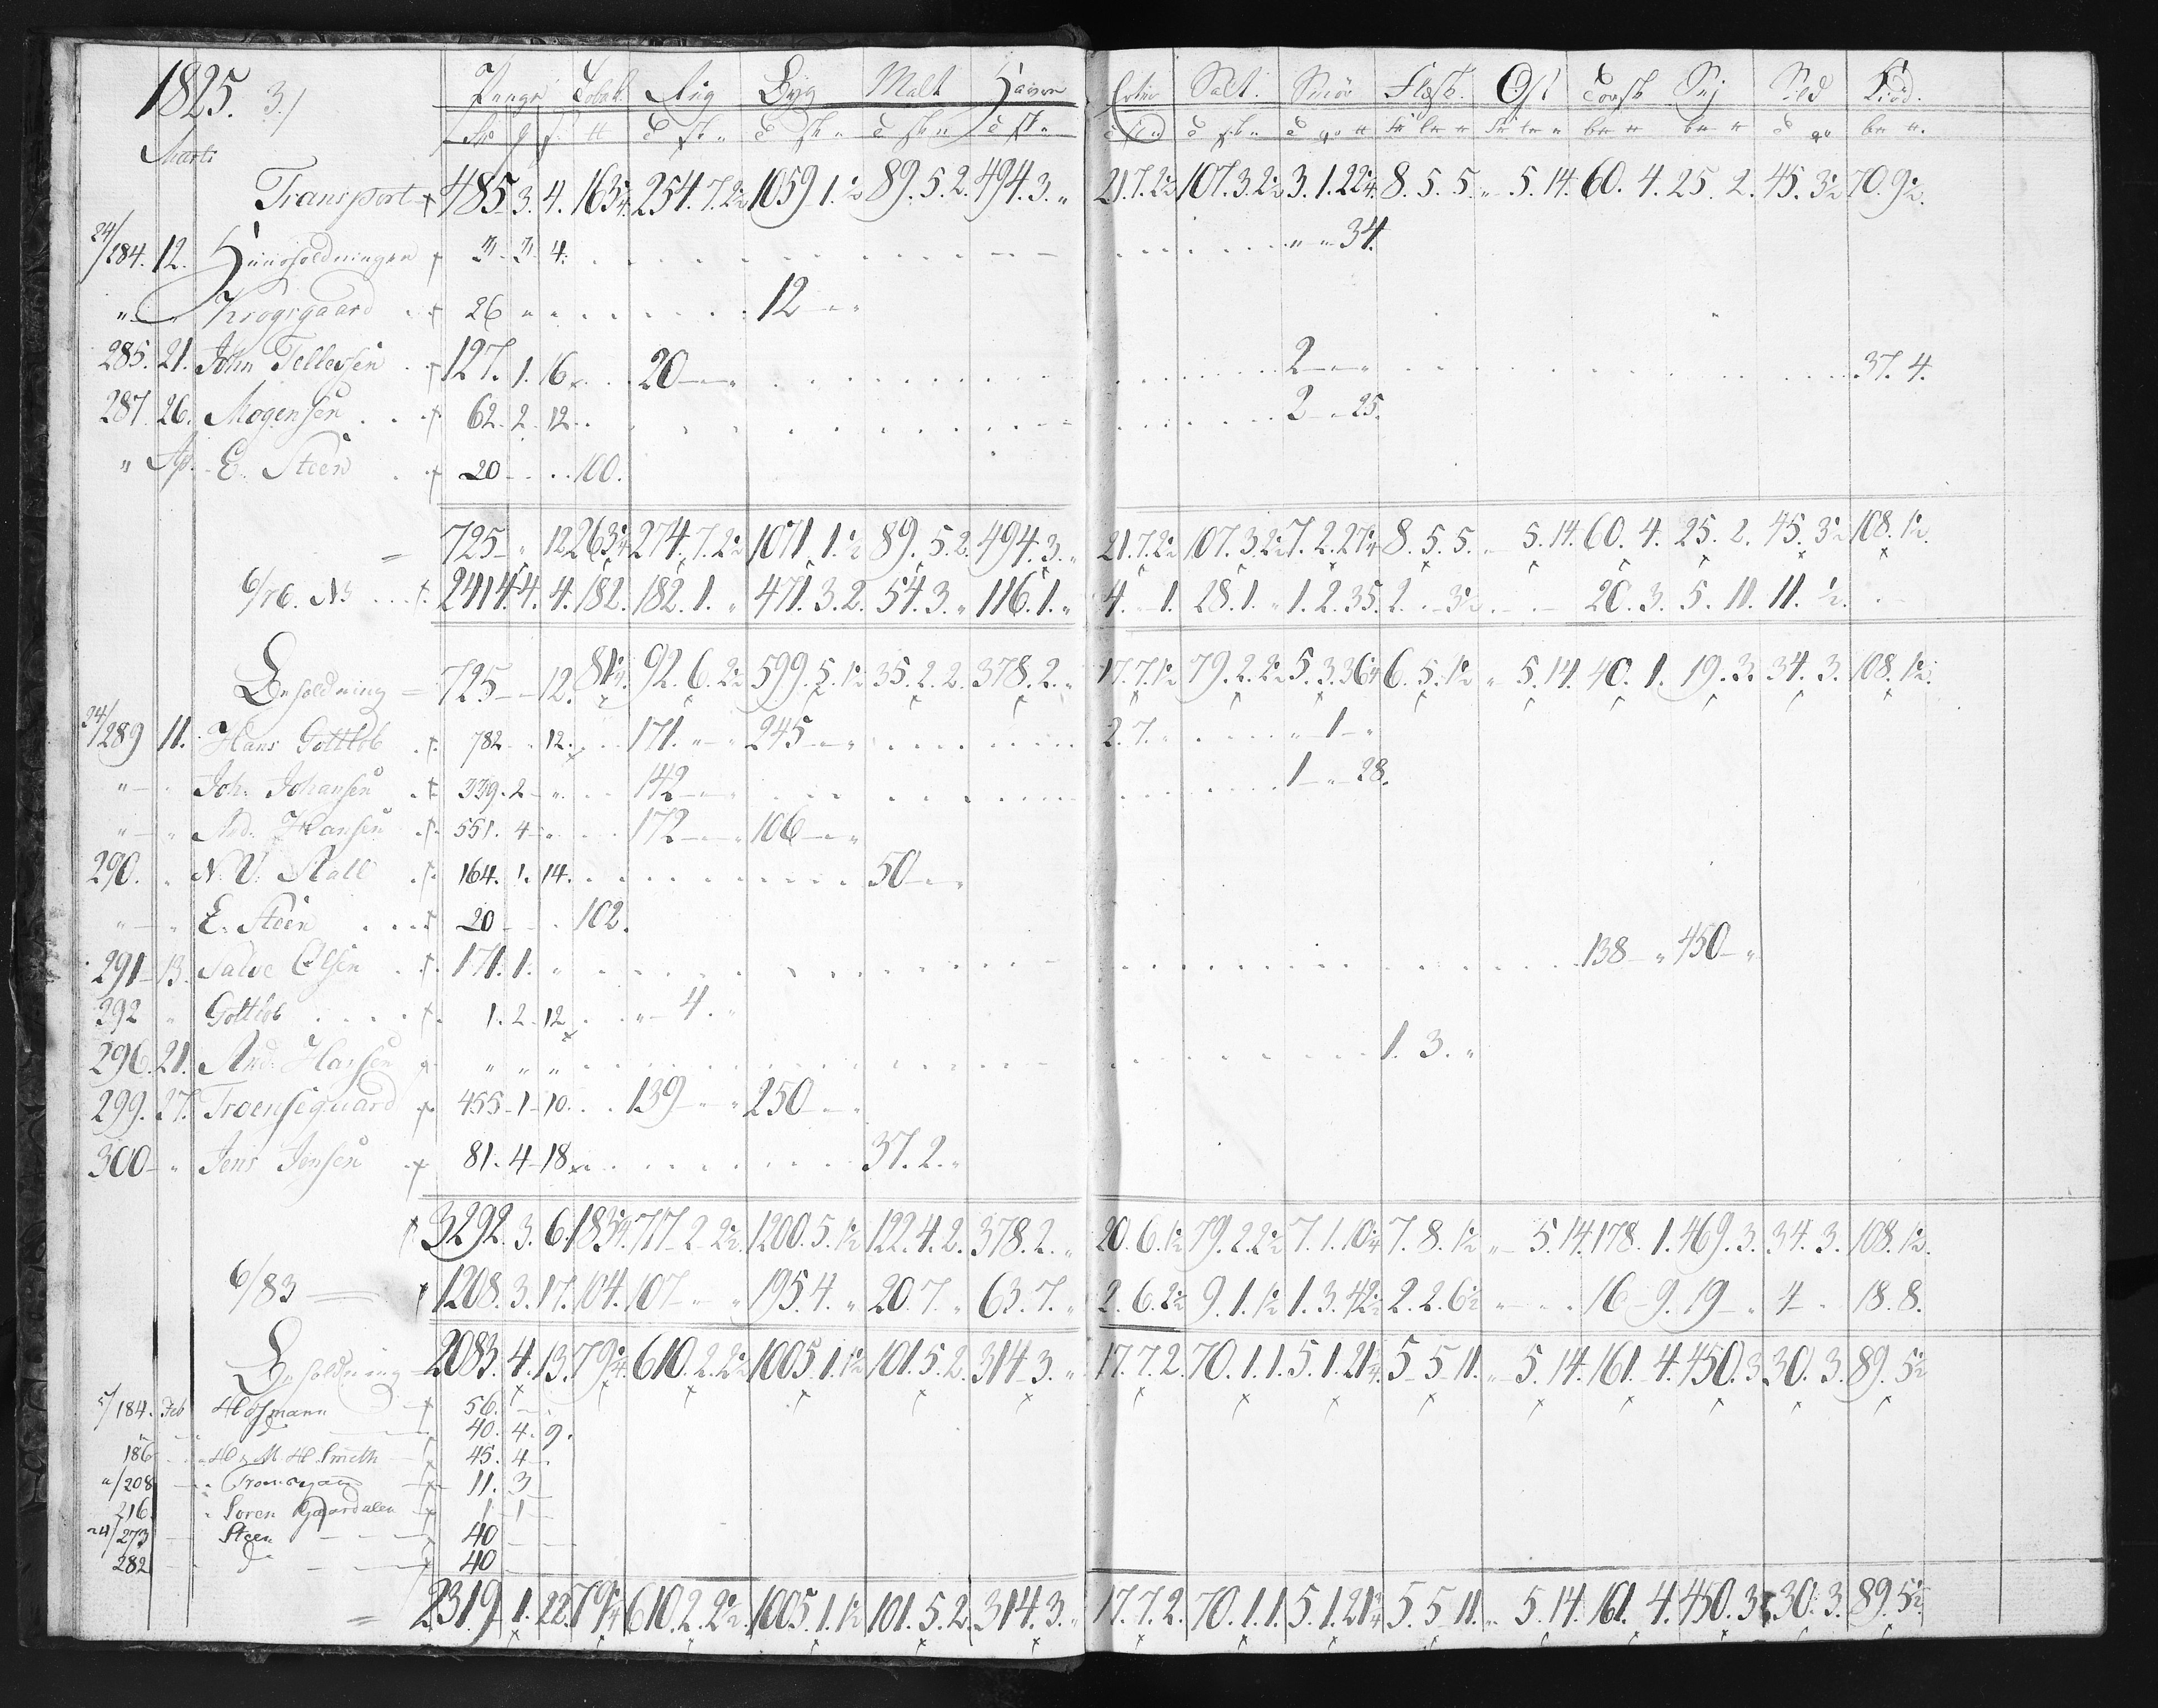 1825. 3.)
Penge Tobak Rug Byg Malt Havre Erter Salt. Smör Flesk. Ost Torsk Sej Sild Kiöd.
Marts
Transport 485. 3. 4. 163¼ 254. 7. 2½ 1059. 1. ½ 89. 5. 2. 494. 3. " 21. 7. 2½ 107. 3. 2½ 3. 1. 22¼ 8. 5. 5. " 5. 14. 60. 4. 25. 2. 45. 3½ 70. 9½.
24/284. 12. Huusholdningen 3. 3. 4. " " 34.
" " Krogsgaard 26 " " 12 — "
285. 21. John Tellefsen 127. 1. 16 20 — " 2 — " 37. 4.
287. 26. Mogensen 62. 2. 12. 2 — " 25.
" Ap. E. Steen 20 — 100.
= 725 — " 12 263¼ 274. 7. 2½ 1071. 1. ½ 89. 5. 2. 494. 3. " 21. 7. 2½ 107. 3. 2½ 7. 2. 27¼ 8. 5. 5. " 5. 14. 60. 4. 25. 2. 45. 3½ 108. 1½.
6/76. 2414. 4. 4. 182. 182. 1. " 471. 3. 2. 54. 3. " 116. 1. " 4. — 1. 28. 1. " 1. 2. 35. 2. — 3½ 20. 3. 5. 11. 11. ½.
Beholdning = 725 — 12. 81¼. 92. 6. 2½ 599. 5. 1½ 35. 2. 2. 378. 2. " 17. 7. 1½ 79. 2. 2½ 5. 3. 36¼ 6. 5. 1½ " 5. 14. 40. 1. 19. 3. 34. 3. 108. 1½.
24/289 11. Hans Gottlob 782 — 12. 171. " 245 — " 2. 7. " " 1 — "
" " Joh. Johansen 339. 2 — " 142 — " 1 — " 28.
" " And. Hansen 551. 4 — " 172 — " 106 — "
290. " N. V. Stall 164. 1. 14. 50 — "
" " E. Steen 20 — 102.
291 — 13. Salve Olsen 171. 1. " 138 — " 450 — "
392 " Gottlob 1. 2. 12 " 4. "
296. 21. And. Hansen " " " 1. 3. "
299. 27. Troensegaard 455 — 1 — 10. 139 — " 250 — "
300 — " Jens Jensen 81. 4 — 18 37. 2. "
3292. 3. 6. 183¼. 717 — 2 2½ 1200. 5. 1½ 122. 4. 2. 378. 2. " 20. 6. 1½ 79. 2. 2½ 7. 1. 10¼ 7. 8. 1½ " 5. 14. 178. 1. 469. 3. 34. 3. 108. 1½.
6/83 1208. 3. 17. 104. 107 — " 195. 4. " 20. 7. " 63. 7. " 2. 6. 2½ 9. 1. 1½ 1. 3. 42½ 2. 2. 6½ " 16 — 9. 19 — " 4 — 18. 8.
Beholdning = 2083. 4. 13. 79¼. 610. 2. 2½ 1005. 1. 1½ 101. 5. 2. 314. 3. " 17. 7. 2. 70. 1. 1. 5. 1. 21¼. 5 — 5 11. " 5. 14. 161. 4. 450. 3. 30. 3. 89. 5½
5/184. Feb Hofmann 56. —
40. 4. 9.
186 H. M. H. Smith 45. 4 —
"/208 11. 3 —
216. " Soren Gaardalen 1 — 1 —
24/273 Steen 40 —
282 — d° 40
= 2319. 1. 22. 79¼ 610. 2. 2½ 1005. 1. 1½ 101. 5. 2. 314. 3. " 17. 7. 2. 70. 1. 1. 5. 1. 21¼ 5. 5 11. " 5. 14. 161. 4. 450. 3. 30. 3. 89. 5½.